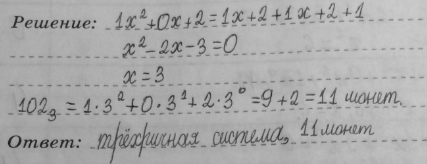 Решение: 1x²+0x+2=1x+2+1x+2+1
x²-2x-3=0
x=3
102₃=1·3²+0·3¹+2·3⁰=9+2=11 монет
Ответ: трёхричная система, 11 монет